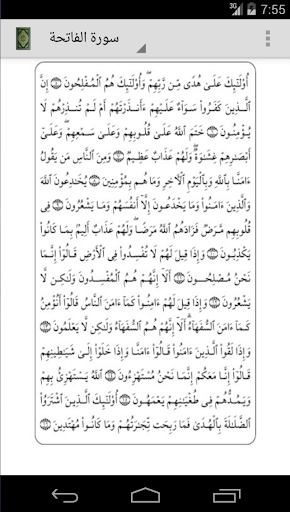 7:55
3G
سورة الفاتحة
أُوْلَٰٓئِكَ عَلَىٰ هُدًى مِّن رَّبِّهِمْ ۖ وَأُوْلَٰٓئِكَ هُمُ ٱلْمُفْلِحُونَ ۝ إِنَّ
ٱلَّذِينَ كَفَرُواْ سَوَآءٌ عَلَيْهِمْ ءَأَنذَرْتَهُمْ أَمْ لَمْ تُنذِرْهُمْ لَا
يُؤْمِنُونَ ۝ خَتَمَ ٱللَّهُ عَلَىٰ قُلُوبِهِمْ وَعَلَىٰ سَمْعِهِمْ ۖ وَعَلَىٰٓ
أَبْصَٰرِهِمْ غِشَٰوَةٌ ۖ وَلَهُمْ عَذَابٌ عَظِيمٌ ۝ وَمِنَ ٱلنَّاسِ مَن يَقُولُ
ءَامَنَّا بِٱللَّهِ وَبِٱلْيَوْمِ ٱلْأَخِرِ وَمَا هُم بِمُؤْمِنِينَ ۝ يُخَٰدِعُونَ ٱللَّهَ
وَٱلَّذِينَ ءَامَنُواْ وَمَا يَخْدَعُونَ إِلَّآ أَنفُسَهُمْ وَمَا يَشْعُرُونَ ۝ فِى
قُلُوبِهِم مَّرَضٌ فَزَادَهُمُ ٱللَّهُ مَرَضًا ۖ وَلَهُمْ عَذَابٌ أَلِيمٌۢ بِمَا كَانُواْ
يَكْذِبُونَ ۝ وَإِذَا قِيلَ لَهُمْ لَا تُفْسِدُواْ فِى ٱلْأَرْضِ قَالُوٓاْ إِنَّمَا
نَحْنُ مُصْلِحُونَ ۝ أَلَآ إِنَّهُمْ هُمُ ٱلْمُفْسِدُونَ وَلَٰكِن لَّا
يَشْعُرُونَ ۝ وَإِذَا قِيلَ لَهُمْ ءَامِنُواْ كَمَآ ءَامَنَ ٱلنَّاسُ قَالُوٓاْ أَنُؤْمِنُ
كَمَآ ءَامَنَ ٱلسُّفَهَآءُ ۗ أَلَآ إِنَّهُمْ هُمُ ٱلسُّفَهَآءُ وَلَٰكِن لَّا يَعْلَمُونَ ۝
وَإِذَا لَقُواْ ٱلَّذِينَ ءَامَنُواْ قَالُوٓاْ ءَامَنَّا وَإِذَا خَلَوْاْ إِلَىٰ شَيَٰطِينِهِمْ
قَالُوٓاْ إِنَّا مَعَكُمْ إِنَّمَا نَحْنُ مُسْتَهْزِءُونَ ۝ ٱللَّهُ يَسْتَهْزِئُ بِهِمْ
وَيَمُدُّهُمْ فِى طُغْيَٰنِهِمْ يَعْمَهُونَ ۝ أُوْلَٰٓئِكَ ٱلَّذِينَ ٱشْتَرَوُاْ
ٱلضَّلَٰلَةَ بِٱلْهُدَىٰ فَمَا رَبِحَت تِّجَٰرَتُهُمْ وَمَا كَانُواْ مُهْتَدِينَ ۝